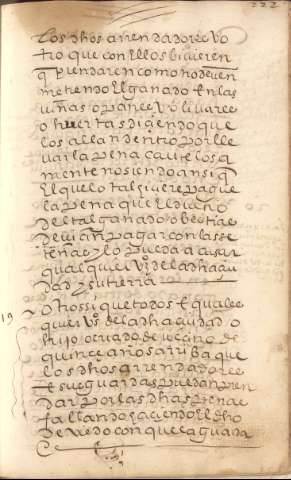 222
los dhos arrendadores vo
tro que con ellos bivieren
q prendaren como no deven
metiendo El ganado En las
viñas o panes v olivares
o huertas diziendo que
los allan dentro por lle
var la pena cautelosa
mente no siendo ansi q
El que lo tal hiziere pague
la pena que El dueño
del tal ganado o bestias
devian pagar con las se
tenas y lo pueda acusar
qualquier vº de la dha çiu
dad y su tierra
19 Otrossi que todos E quales
quier vºs de la dha çiudad o
hijo o criado de vezino de
quinze años arriba que
los dhos arrendadores
E sus guardas puedan pren
dar por las dhas penas
fallando haziendo El dho
devedo con que la guarda